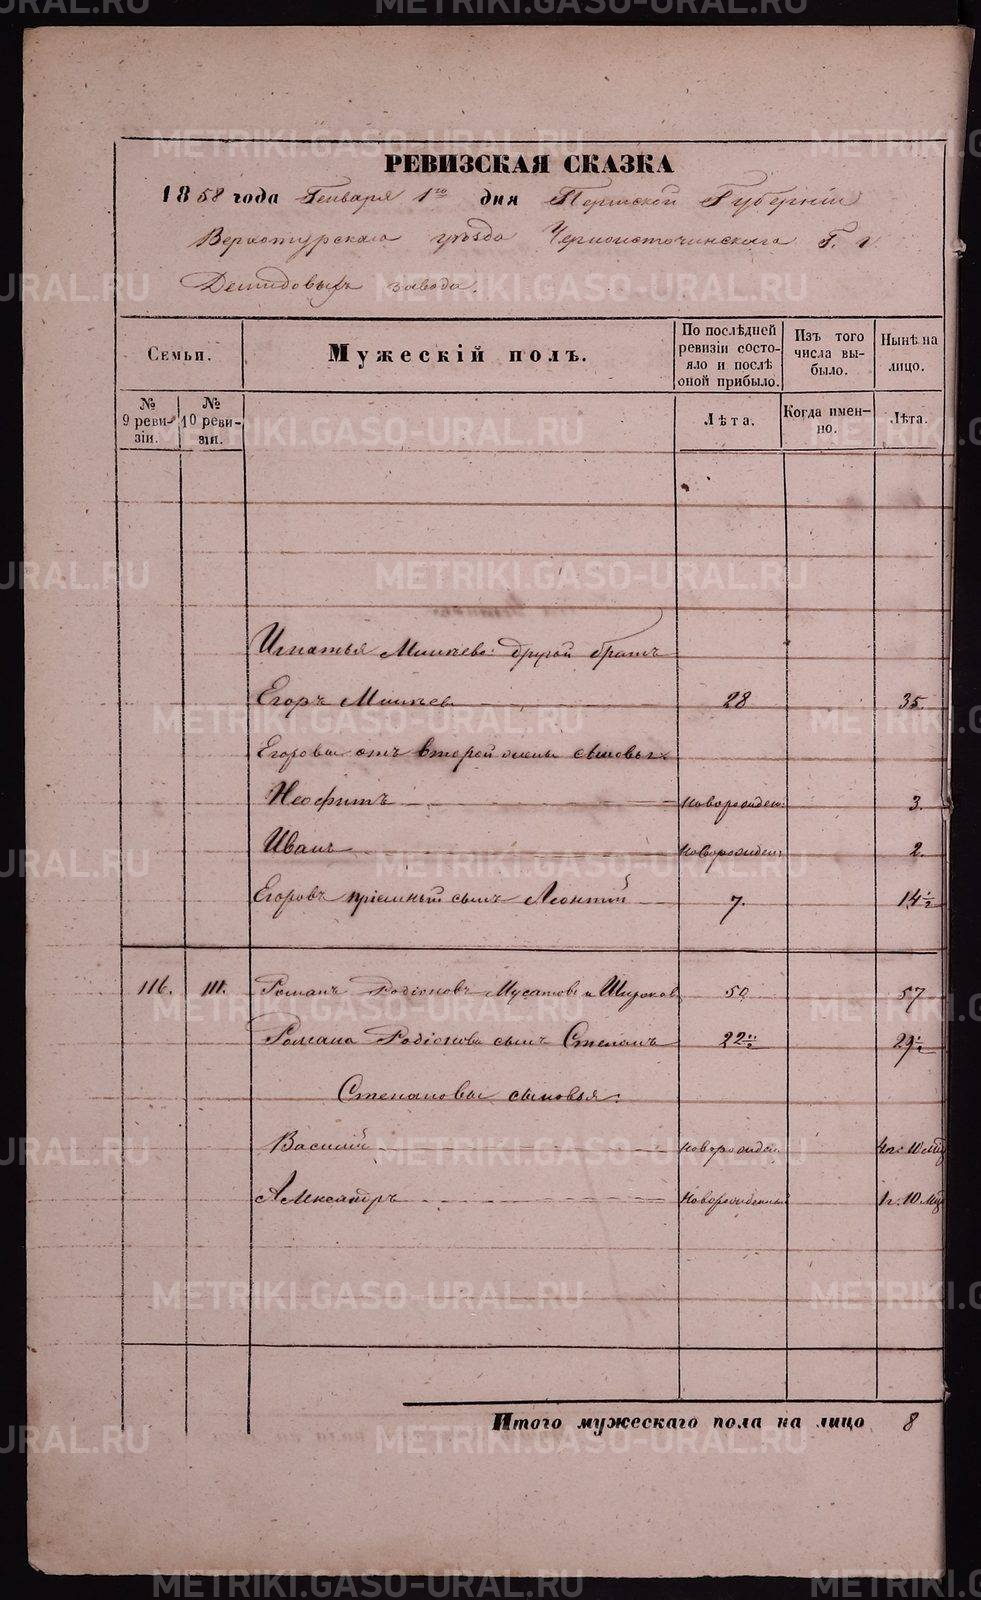 РЕВИЗСКАЯ СКАЗКА
1858 года Генваря 1го дня Пермской Губернiи
Верхотурскаго уѣзда Черноисточинскаго Г. г
Демидовыхъ завода.
Семьи.
Мужескiй полъ.
По послѣдней ревизiи состояло и послѣ оной прибыло.
Изъ того числа выбыло.
Нынѣ на лицо.
№ 9 ревизiи.
№ 10 ревизiи.
Лѣта.
Когда именно.
Лѣта.
Игнатья другой братъ
Егоръ 28 35.
Егоровы отъ второй жены сыновья
Неофитъ новорожден: 3.
Иванъ новорожден: 2.
Егоровъ прiемный сынъ Леонтiй 7. 14½
116. 111. Романъ Родiоновъ Мусатовъ и Широков 50 57
Романа Родiонова сынъ Степанъ 22½ 29½
Степановы сыновья:
Василiй новорожден. 4г: 10 мѣс
Александръ новорожденный 1г. 10 мѣс
Итого мужескаго пола на лицо 8
METRIKI.GASO-URAL.RU